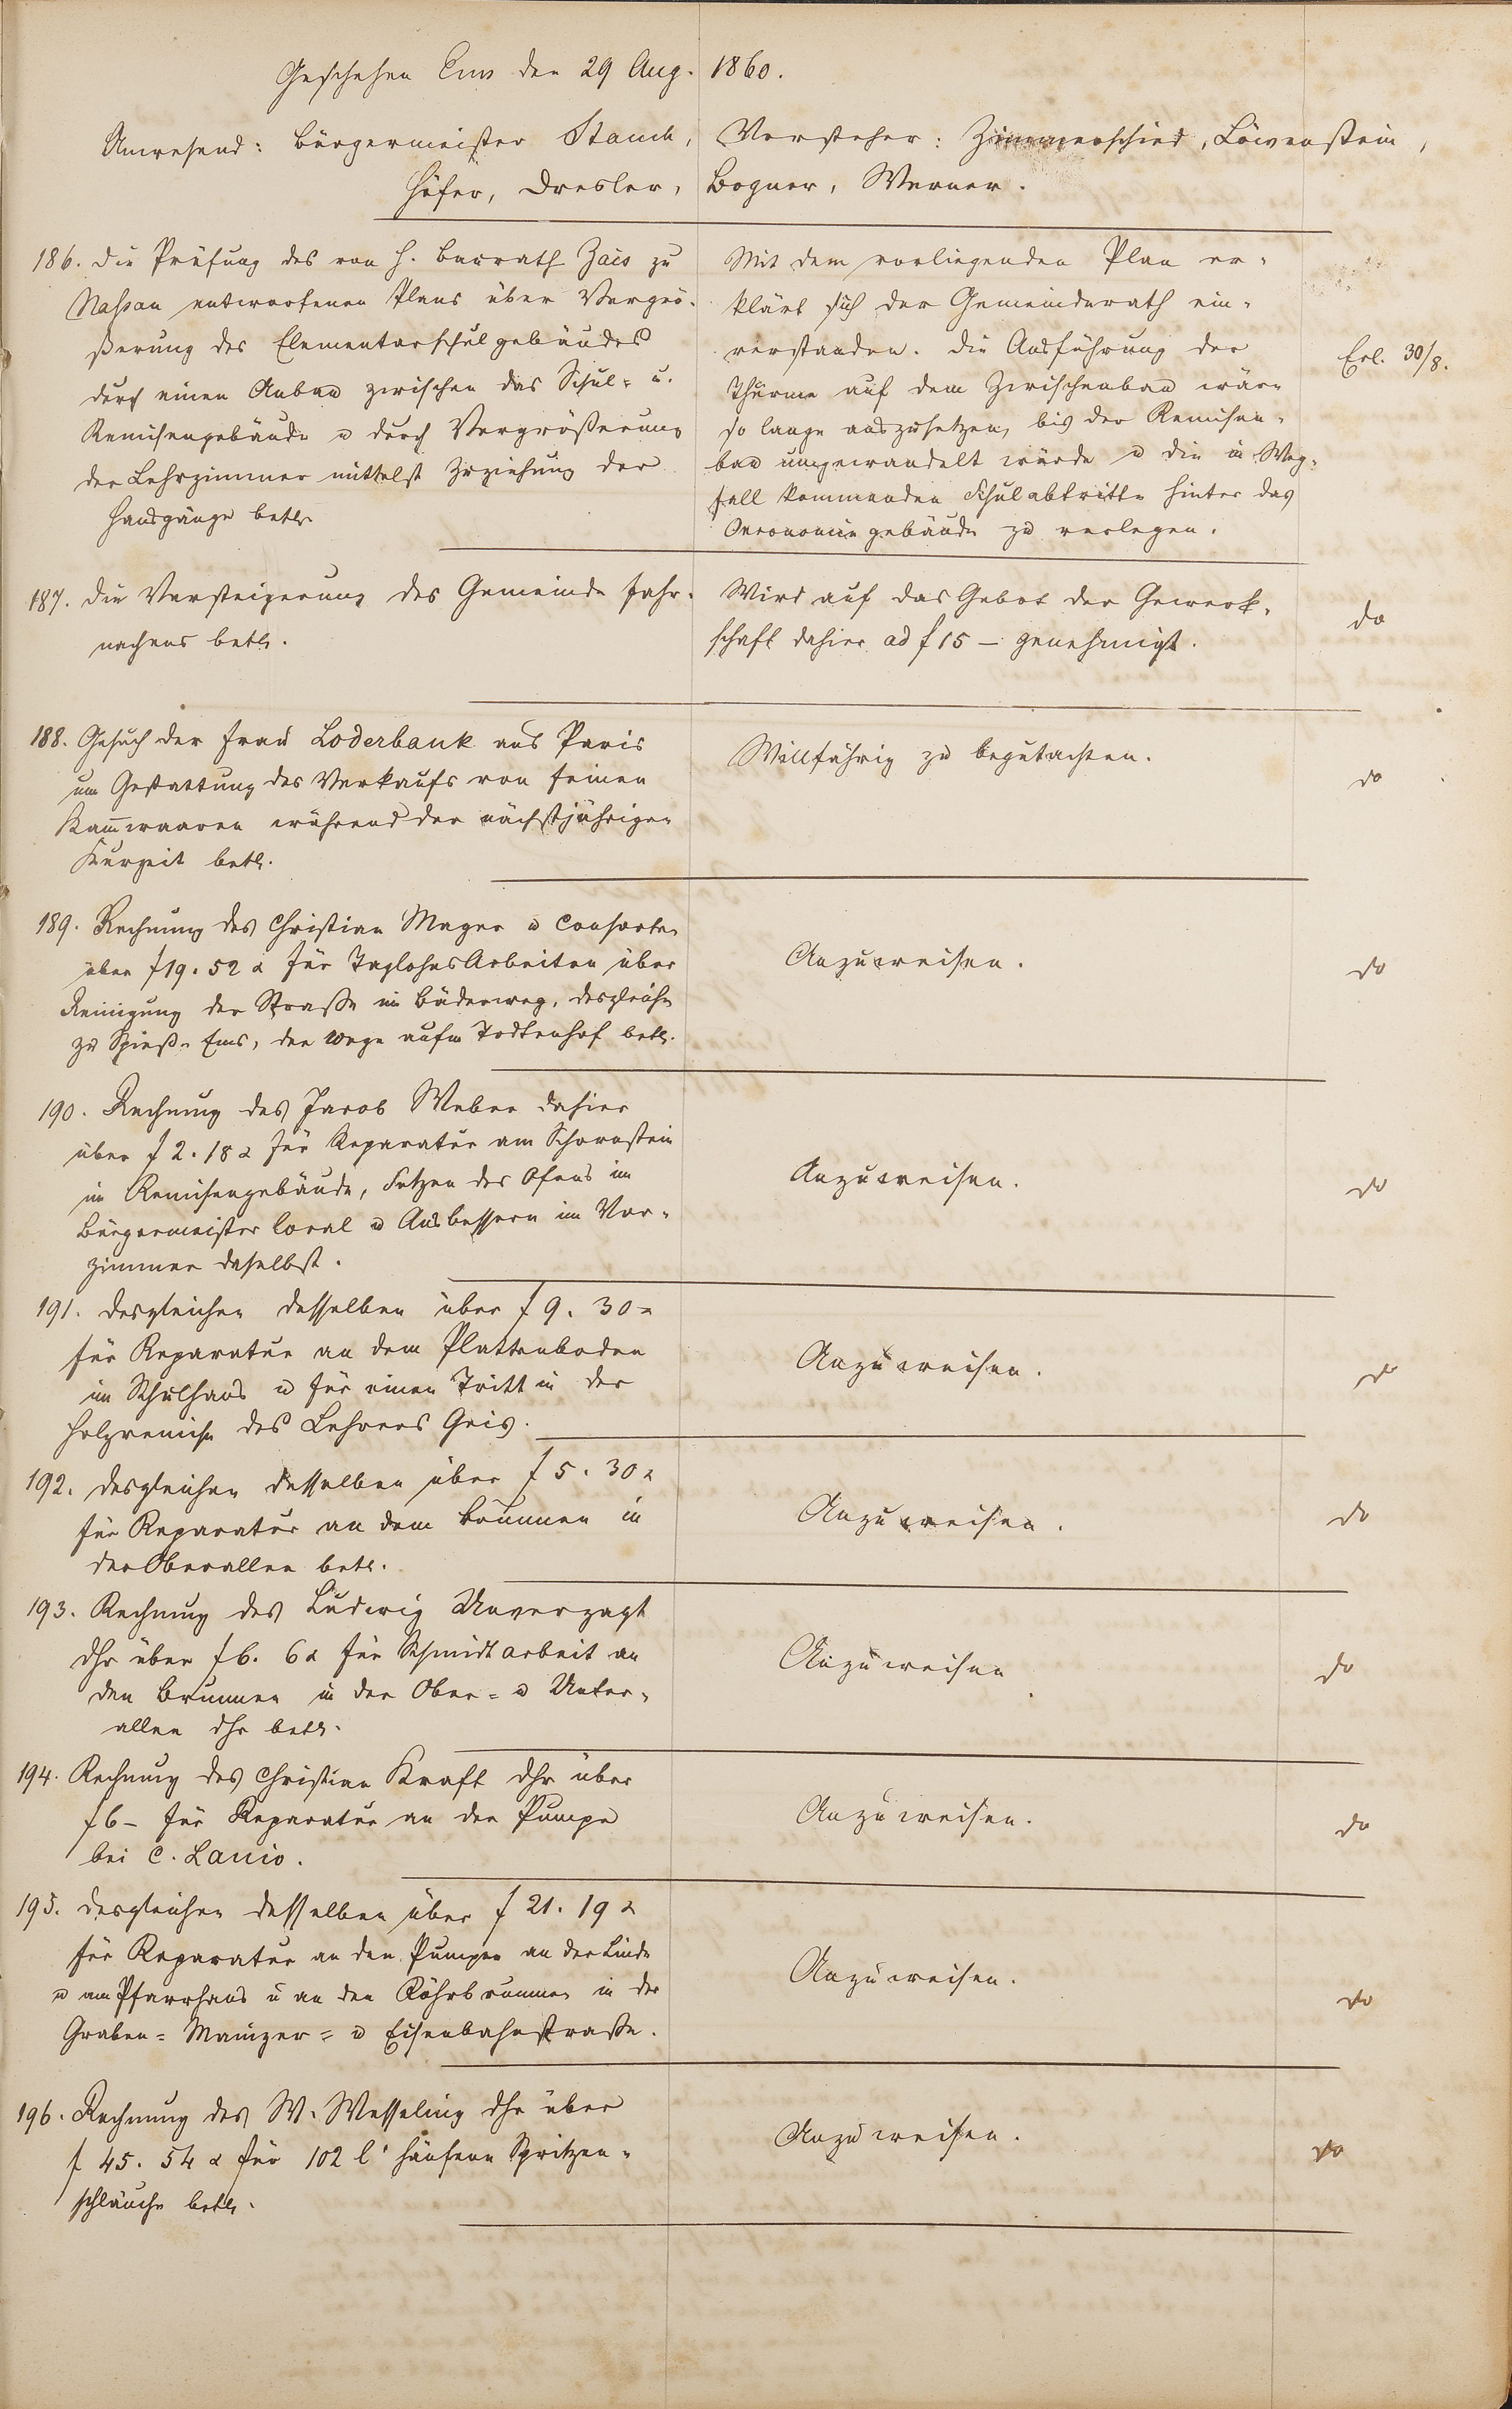 Geschehen Ems den 29 Aug. 1860.
Anwesend: Bürgermeister Stamb, Vorsteher: Zimmerschied, Löwenstein,
Höfer, Dresler, Bogner, Werner.
186. Die Prüfung des von H. Baurath Zais zu
Nassau entworfenen Plans über Vergrö-
ßerung des Elementarschulgebäudes
durch einen Anbau zwischen das Schul- u.
Remisengebäude u durch Vergrößerung
der Lehrzimmer mittelst Zuziehung der
Hausgänge betr.
Mit dem vorliegenden Plan er-
klärt sich der Gemeinderath ein-
verstanden. Die Ausführung der
Thürme auf dem Zwischenbau wäre
so lange auszusetzen, bis der Remisen-
bau umgewandelt würde u die in Weg-
fall kommenden Schulabtritte hinter das
Oeconomiegebäude zu verlegen.
Erl. 30/8.
187. Die Versteigerung des Gemeinde Fahr-
nachens betr.
Wird auf das Gebot der Gewerk-
schaft dahier ad f 15 – genehmigt.
do
188. Gesuch der Frau Loderbank aus Paris
um Gestattung des Verkaufs von feinen
Kam̄waaren während der nächstjährigen
Kurzeit betr.
Willfährig zu begutachten.
do
189. Rechnung des Christian Mager u Consorten
über f 19. 52 x für Taglohns Arbeiten über
Reinigung der Straße im Bäderweg, desgleichen
zu Spieß-Ems, der Wege aufm Todtenhof betr.
Anzuweisen.
do
190. Rechnung des Jacob Weber dahier
über f 2. 18 x für Reparatur am Schornstein
im Remisengebäude, Setzen des Ofens im
Bürgermeister local u Ausbessern im Vor-
zimmer daselbst.
Anzuweisen.
do
191. Desgleichen desselben über f 9. 30 x
für Reparatur an dem Plattenboden
im Schulhaus u für einen Tritt in der
Holzremise des Lehrers Geis.
Anzuweisen.
do
192. Desgleichen desselben über f 5. 30 x
für Reparatur an dem Brunnen in
der Oberallee betr.
Anzuweisen.
do
193. Rechnung des Ludwig Unverzagt
dhr über f 6. 6 x für Schmidtarbeit an
den Brunnen in der Ober- u Unter-
allee dhr betr.
Anzuweisen
do
194. Rechnung des Christian Kraft dhr über
f 6 – für Reparatur an der Pumpe
bei C. Lanio.
Anzuweisen.
do
195. Desgleichen desselben über f 21. 19 x
für Reparatur an den Pumpen an der Linde
u am Pfarrhaus u an den Röhrbrunnen in der
Graben- Mainzer- u Eisenbahnstraße.
Anzuweisen.
do
196. Rechnung des W. Wesseling dhr über
f 45. 54 x für 102 l' hänfene Spritzen-
schläuche betr.
Anzuweisen.
do